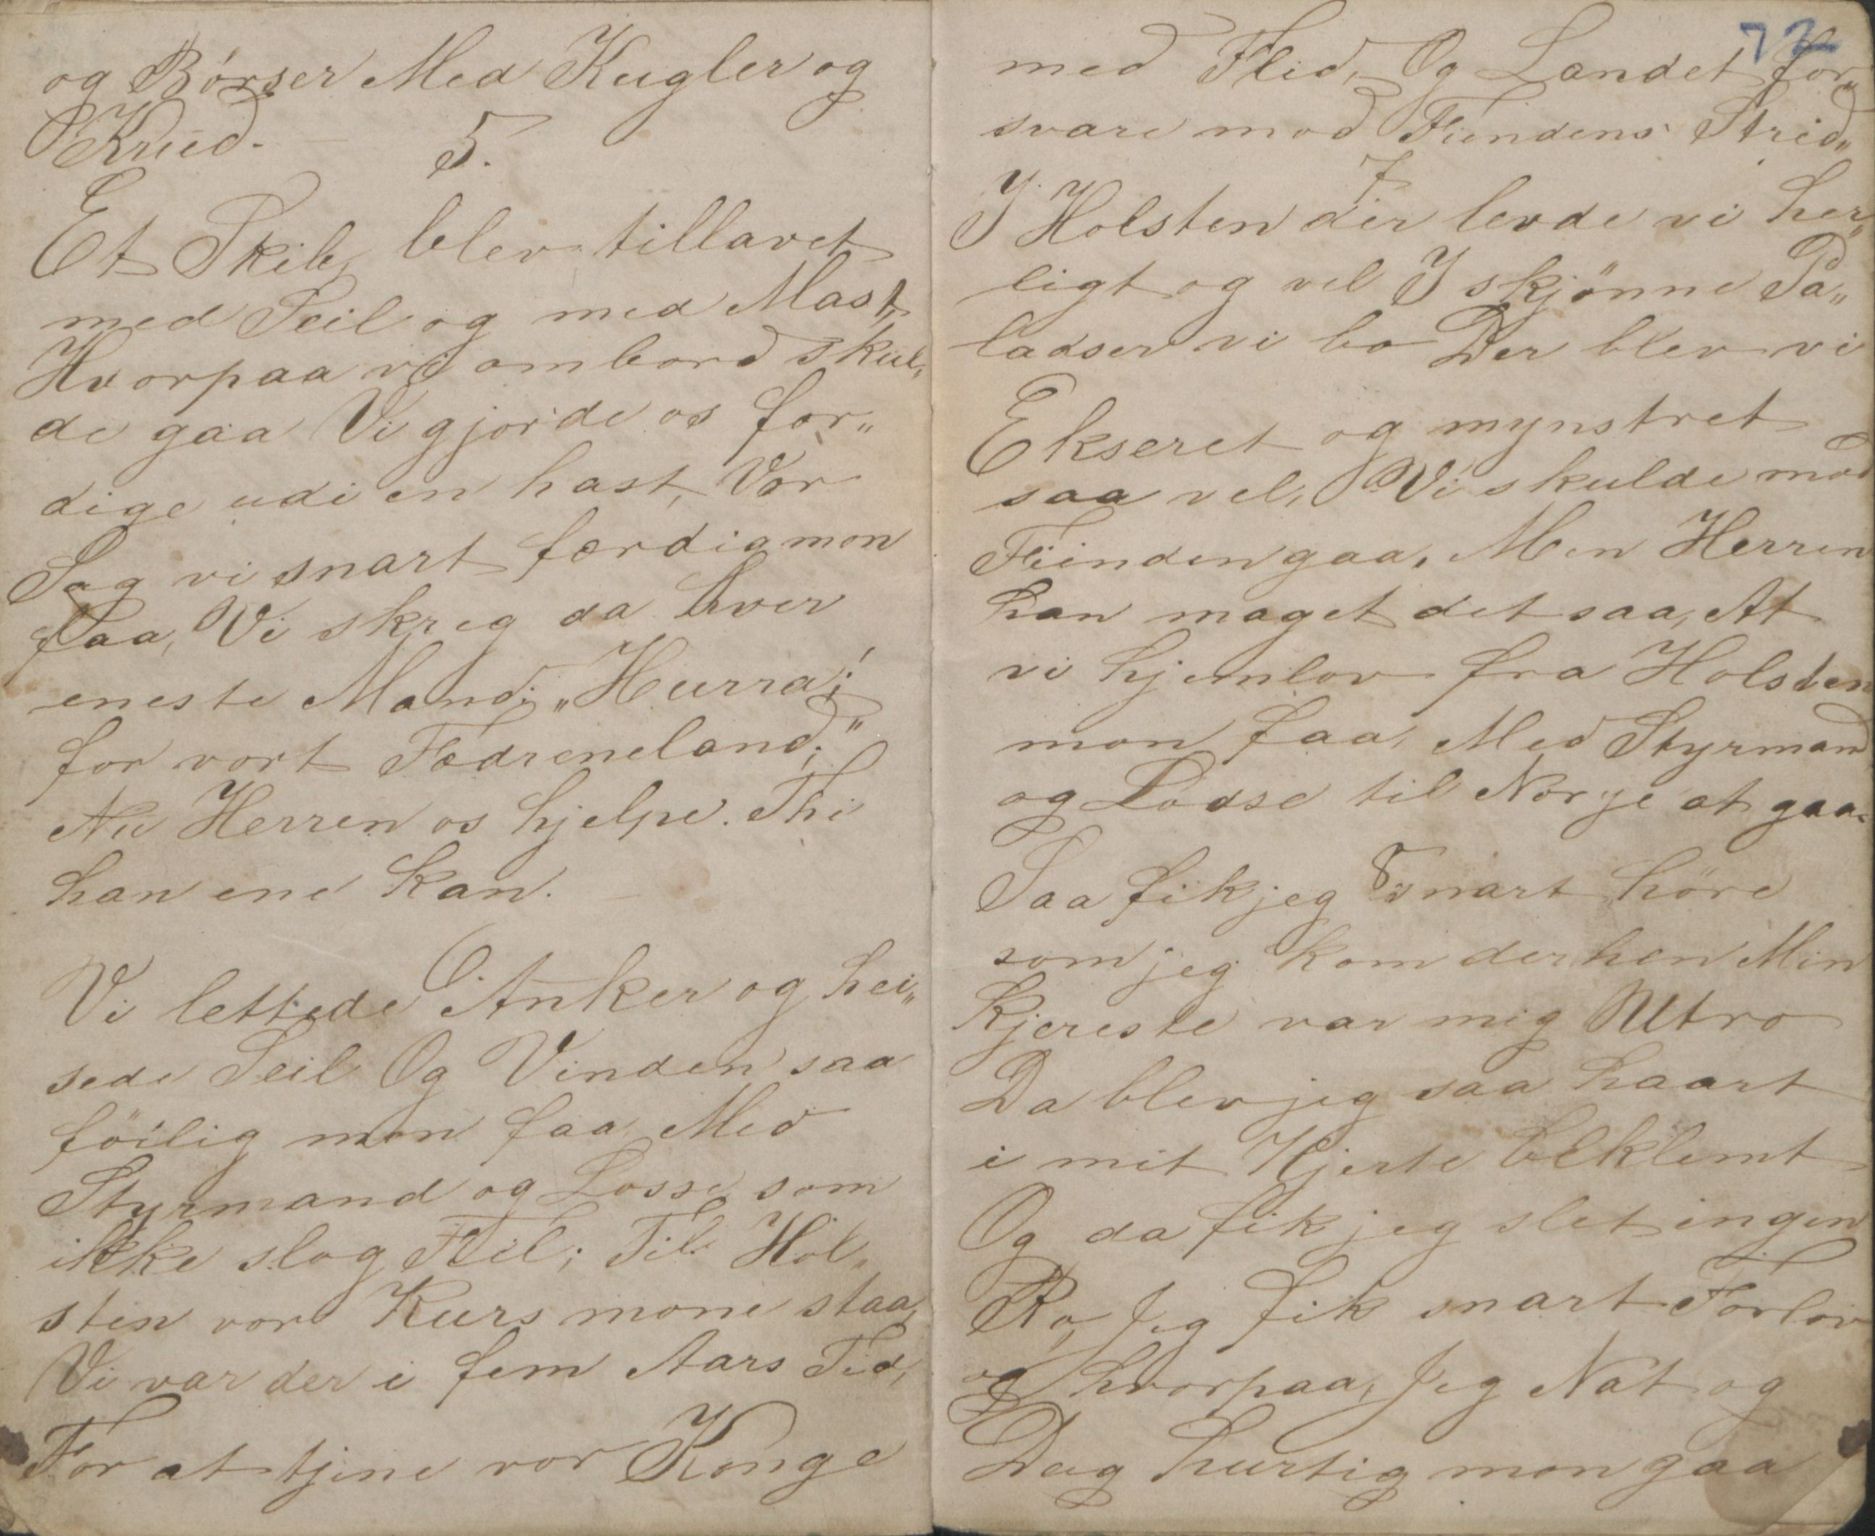 og Børser Med Kugler og
Krud.
5.
Et Skib blev tillavet
med Seil og med Mast,
Hvorpaa vi ombord skul„
de gaa Vi gjorde os fær„
dige udi en hast, Vor
Sag vi snart færdig mon
faa, Vi skreg da hver
eneste Mand; „Hurra!
for vort Fædreneland;“
Nu Herren os hjelpe. Thi
han ene kan.
6.
Vi lettede Anker og hei„
sede Seil Og Vinden saa
föilig mon faa, Med
Styrmand og Losse, som
ikke slog Feil; Til Hol„
sten vor Kurs mone staa,
Vi var der i fem Aars Tid,
For at tjene vor Konge
72
med Flid, Og Landet for„
svare mod Fiendens Strid„
7
I Holsten der levde vi her„
ligt og vel I skjönne Pa„
ladser vi bo Der blev vi
Ekseret og mynstret
saa vel, Vi skulde mod
Fienden gaa, Men Herren
han maget det saa, At
vi hjemlov fra Holsten
mon faa, Med Styrmand
og Lodse til Norge at gaa.
8
Saa fik jeg snart höre
som jeg kom derhen Min
Kjereste var mig Utro
Da blev jeg saa haart
i mit Hjerte beklemt
Og da fik jeg slet ingen
Ro, Jeg fik snart Forlov
og hvorpaa, Jeg Nat og
Dag hurtig mon gaa